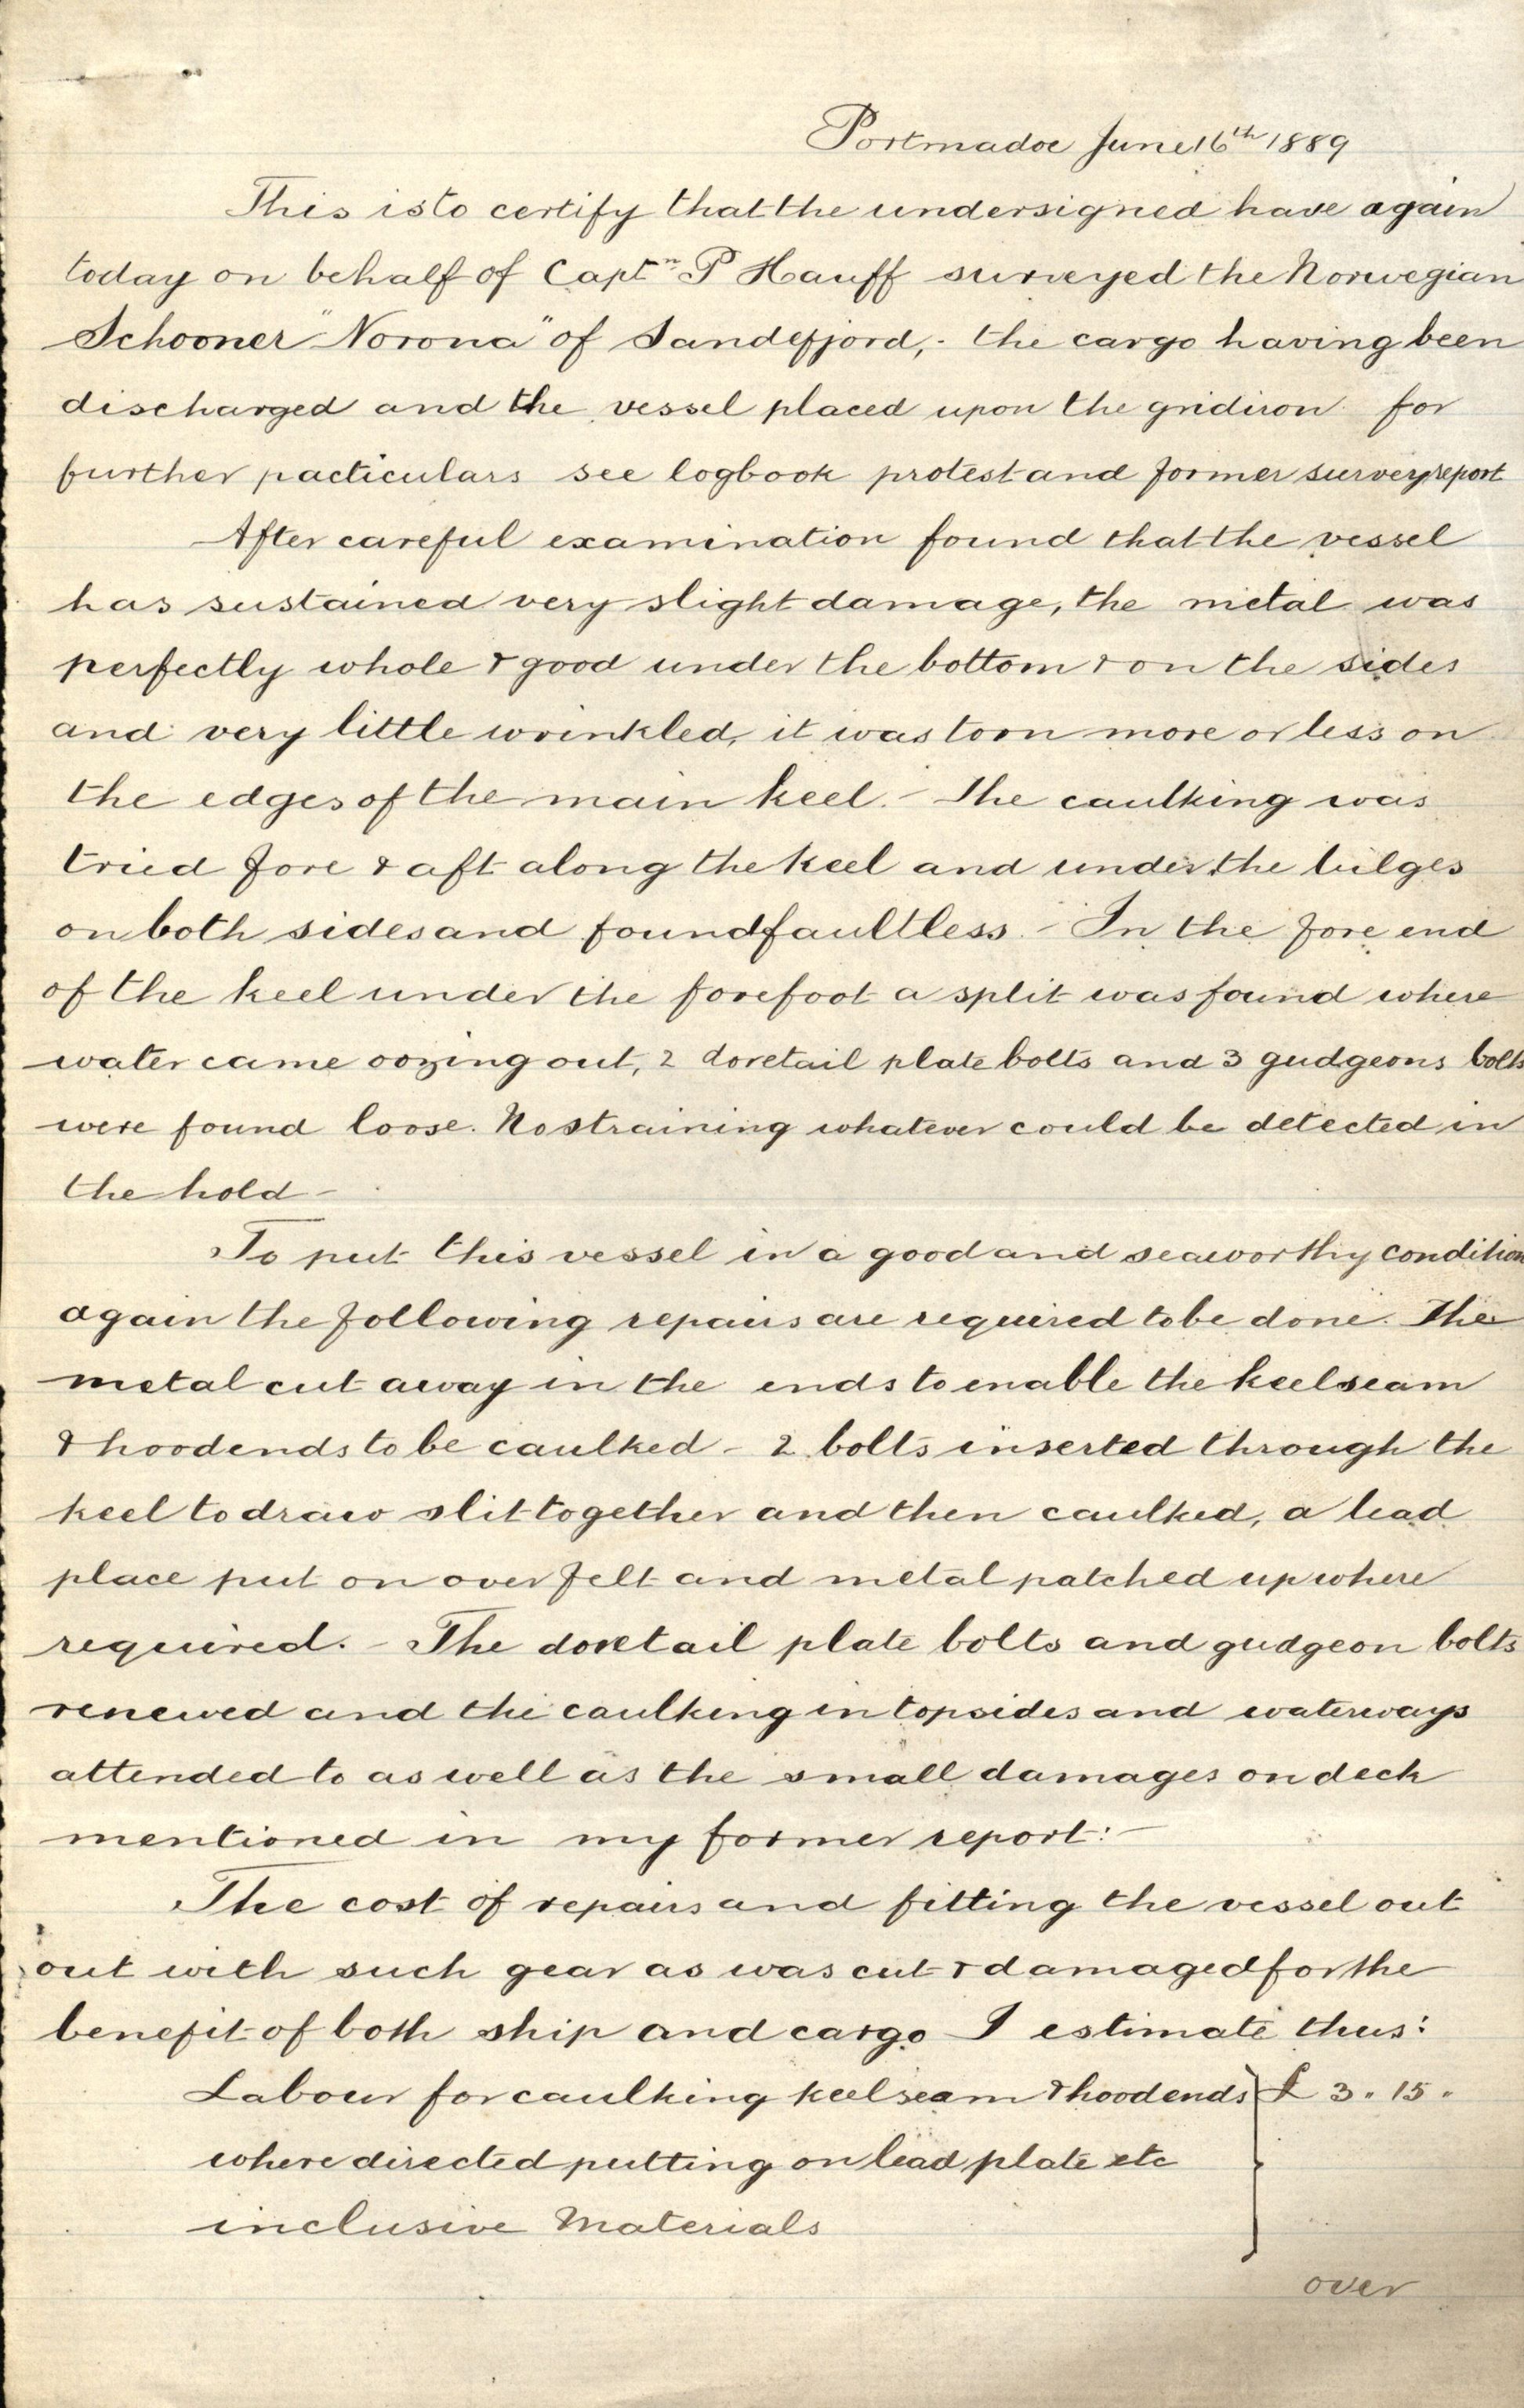 Portmadoc June 16th 1889
This is to certify that the undersigned have again
today on behalf of Captn P Hauff surveyed the Norwegian
Schooner "Norona" of Sandefjord,- the cargo having been
discharged and the vessel placed upon the gridiron for
further pacticulars see logbook protest and former survey report
After careful examination found that the vessel
has sustained very slight damage, the metal was
perfectly whole & good under the bottom & on the sides
and very little wrinkled, it was torn more or less on
the edges of the main keel. - The caulking was
tried fore & aft along the keel and under the bilges
on both sides and found faultless. - In the fore end
of the keel under the forefoot a split was found where
water came oozing out, 2 dovetail plate bolts and 3 gudgeons bolts
were found loose. No straining whatever could be detected in
the hold -
To put this vessel in a good and seaworthy condition
again the following repairs are required to be done. The
metal cut away in the ends to enable the keelseam
& hoodends to be caulked - 2 bolts inserted through the
keel to draw slit together and then caulked, a lead
place put on over felt and metal patched up where
required. - The dovetail plate bolts and gudgeon bolts
renewed and the caulking in topsides and waterways
attended to as well as the small damages on deck
mentioned in my former report:-
The cost of repairs and fitting the vessel out
out with such gear as was cut & damaged for the
benefit of both ship and cargo I estimate thus:
Labour for caulking keelseam & hoodends } £ 3 " 15 "
where directed putting on lead plate etc
inclusive Materials
over